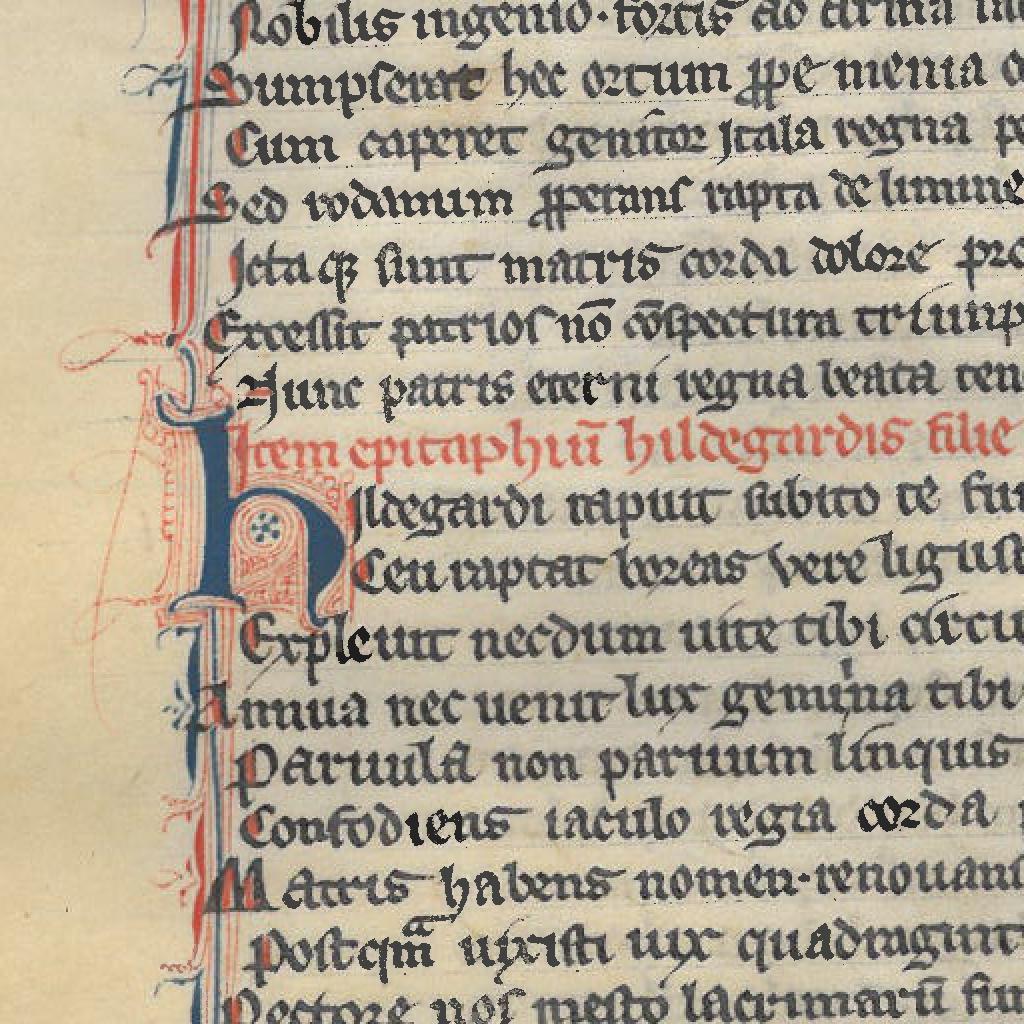 Nobilis ingenio · fortis ad arma
Sumpserat hec ortum ꝓpe menia
Cum caperet genitor Itala regna
Sed rodanum ꝓperans rapta de limine
Ictaqꝫ sunt matris corda dolore
Excessit patrios nō cōspectura
Nunc patris eterni regna beata
Item epitaphiū hildegardis filie
hIldegardi rapuit subito te
Ceu raptat boreas vere
Expleuit necdum uite tibi
Annua nec uenit lux gemina tibi
Paruula non paruum linquis
Confodiens iaculo regia corda
Matris habens nomen · renouans
Postqᵃm uixisti uix
Pectore nos mesto lacrimarū